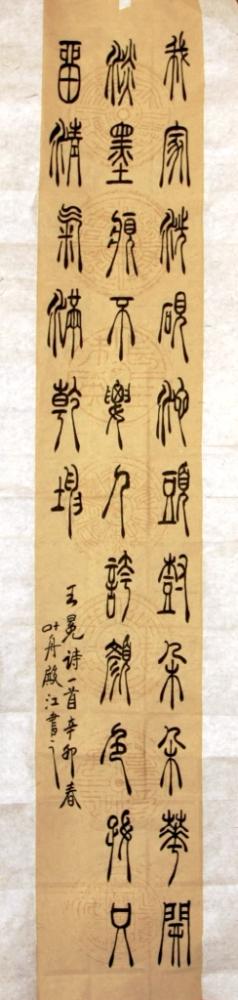 我家洗硯池頭樹朵朵華開
淡墨痕不要人誇顏色好只
留清氣滿乾坤
王冕诗一首辛卯春
殿江書